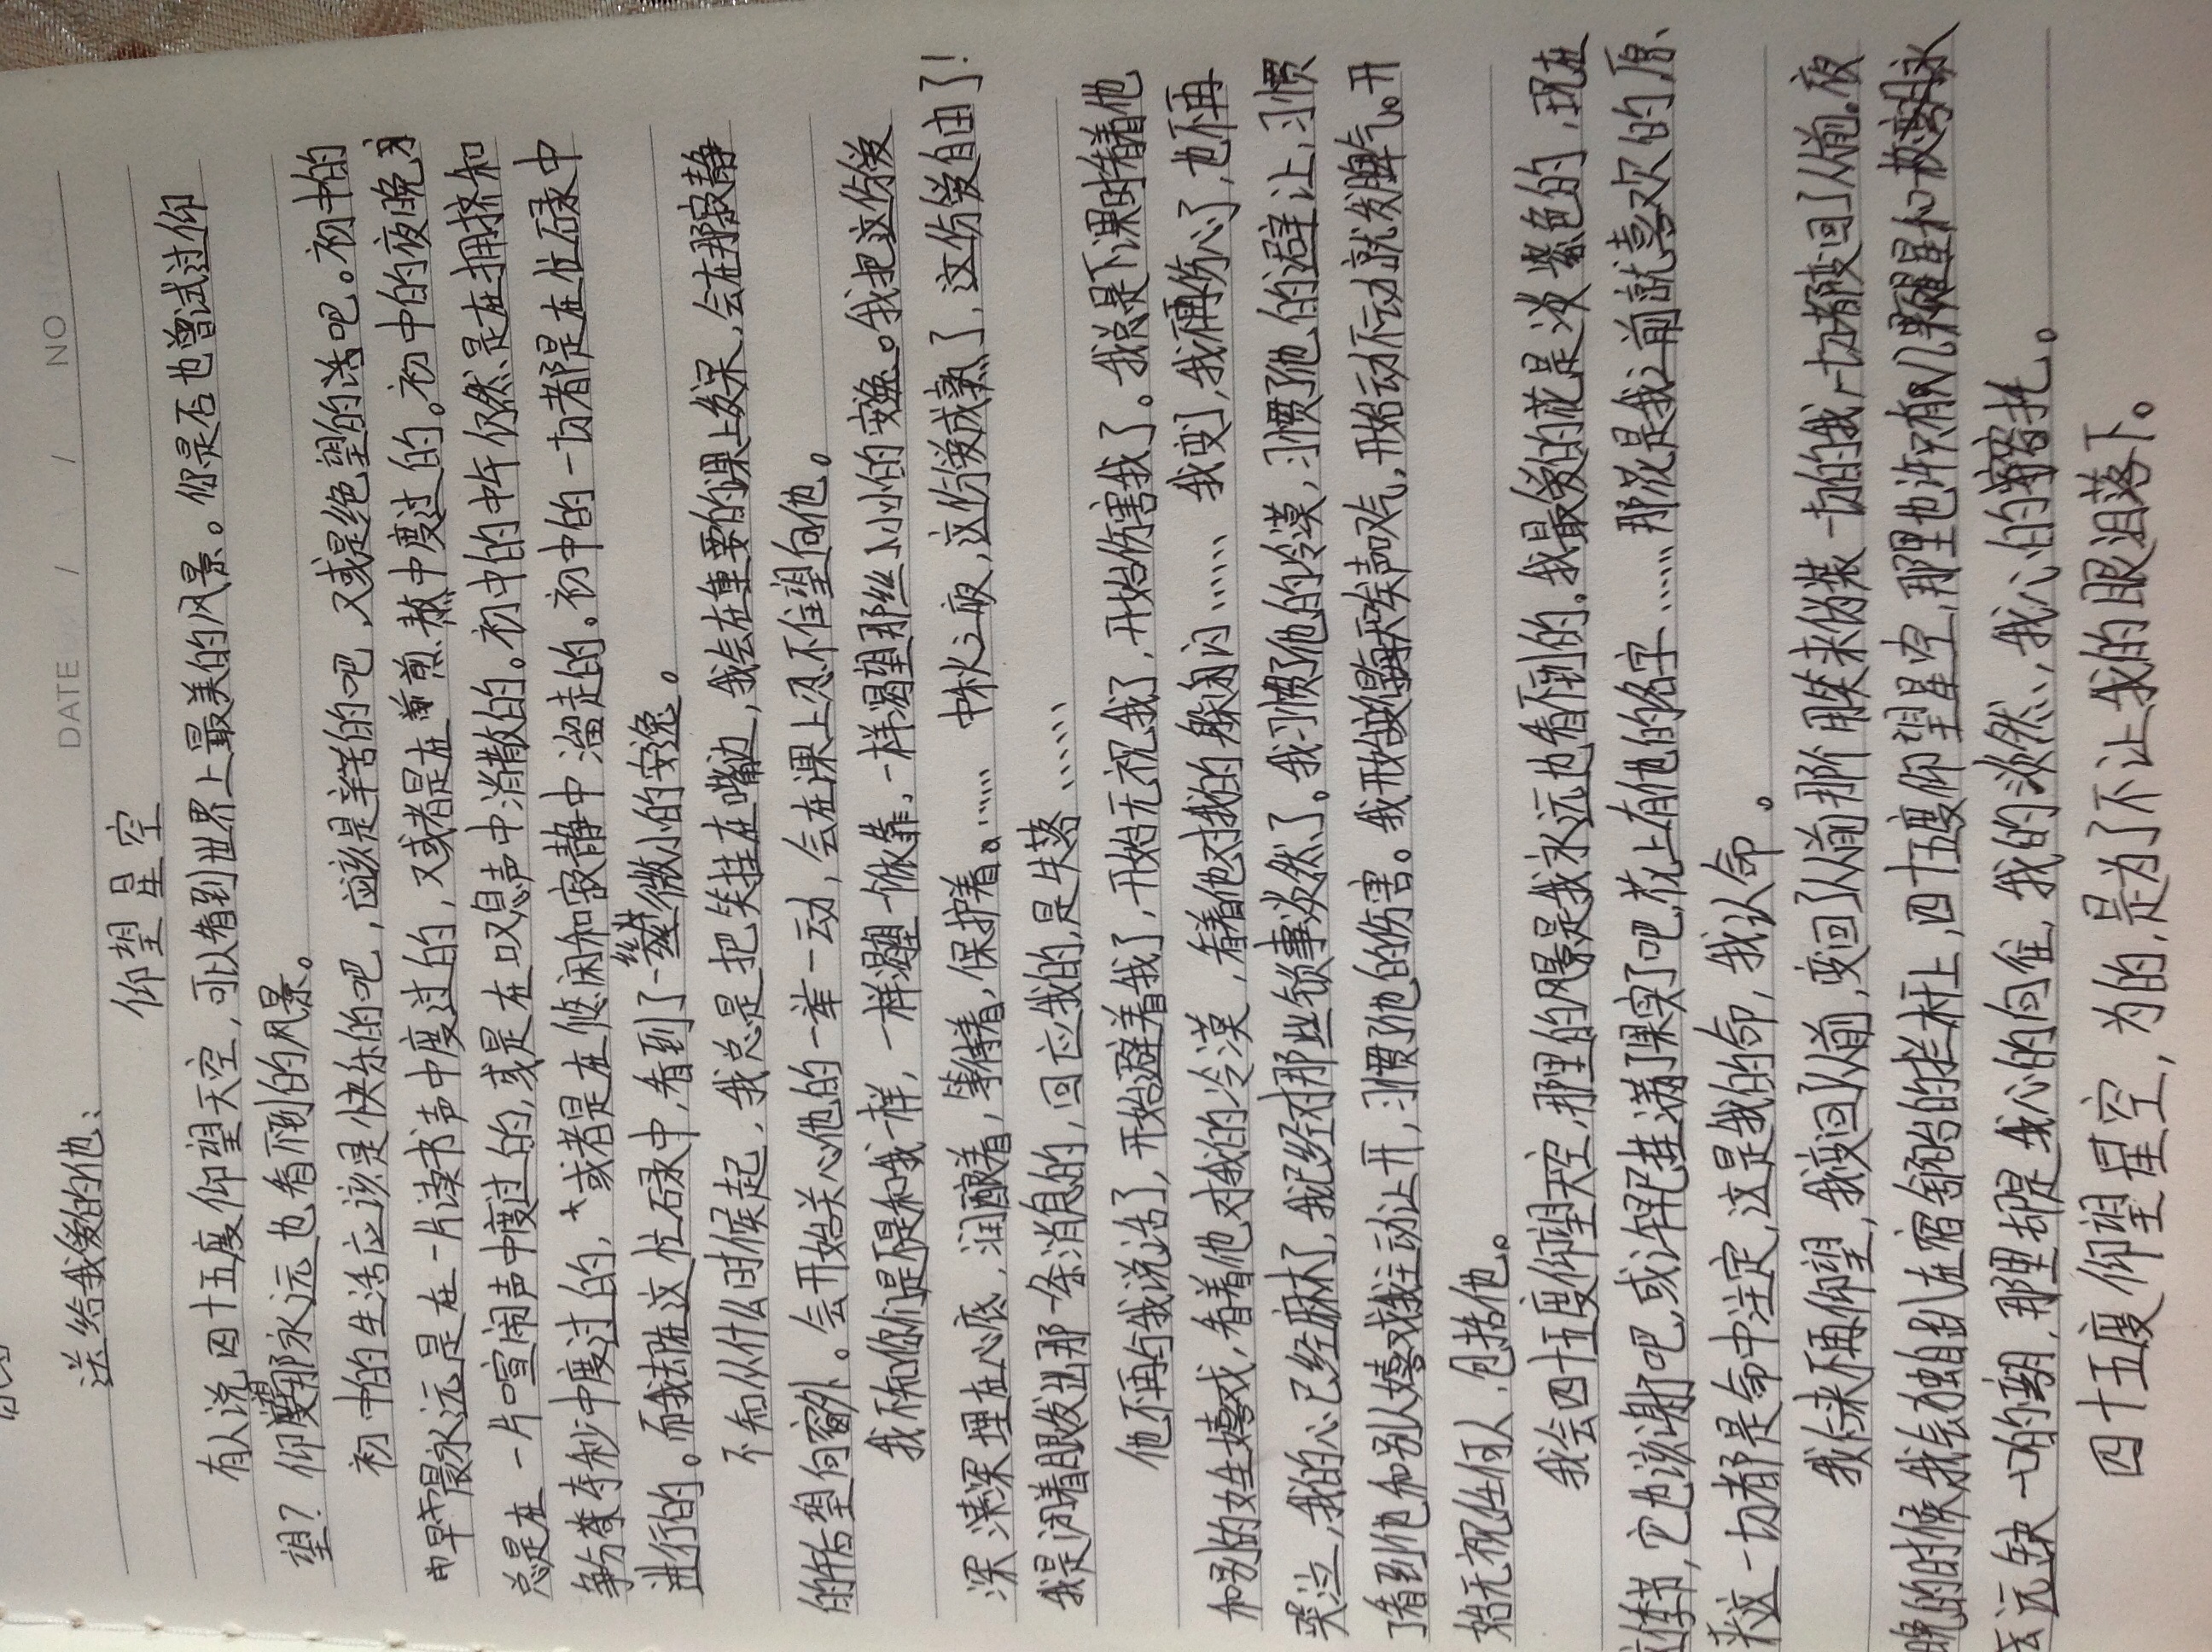 DATE / / NO
送给我爱的他：
仰望星空
有人说四十五度仰望天空，可以看到世界上最美的风景。你是否也曾试过仰
望？仰望那永远也看不到的风景。
初中的生活应该是快乐的吧，应该是辛苦的吧，又或是绝望的活吧。初中的
早晨永远是在一片读书声中度过的，又或者是在煎熬中度过的。初中的夜晚
总是在一片喧闹声中度过的，或是在叹息声中消散的。初中的中午仍然是在拥挤和
争分夺秒中度过的，或者是在悠闲和寂静中溜走的。初中的一切都是在忙碌中
进行的。而我却在这忙碌中，看到了一丝微小的安逸。
不知从什么时候起，我总是把笑挂在嘴边，我会在重要的课上发呆，会在那寂静
的午后望向窗外。会开始关心他的一举一动，会在课上忍不住望向他。
我不知你们是不是和我一样，一样渴望一份依靠，一样渴望那丝小小的安逸。我把这份爱
深深深埋在心底，润酿着，等待着，保护着。…… 中秋之夜，这份爱成熟了，这份爱自由了！
我是闭着眼发出那一条消息的，回应我的，是失落……
他不再与我说话了，开始避着我了，开始无视我了，开始伤害我了。我总是下课时看着他
和别的女生嬉戏，看着他对我的冷漠，看着他对我的躲闪…… 我变了，我不再伤心了，也不再
哭泣，我的心已经麻木了，我已经对那些锁事淡然了。我习惯了他的冷漠，习惯了他的避让，习惯
了看到他和别人嬉戏我主动让开，习惯了他的伤害。我开始变得每天唉声叹气，开始动不动就发脾气。开
始无视任何人，包括他。
我会四十五度仰望天空，那里的风景是我永远也看不到的。我最爱的花是淡紫色的，现在
季节，它也该谢了吧，或许早已挂满了果实了吧，花上有他的名字……那花是我之前就喜欢的，原、
来这一切都是命中注定，这是我的命，我认命。
我后来不再仰望，我变回从前，变回了从前那个用笑来伪装一切的我，一切都变回了从前。夜
晚的时候我会独自趴在宿舍的栏杆上，四十五度仰望星空，那里也许只有几颗星和一枚永
远缺一角的月，那里却是我心的向往，我的淡然，我心的寄托。
四十五度仰望星空，为的，是为了不让我的眼泪落下。